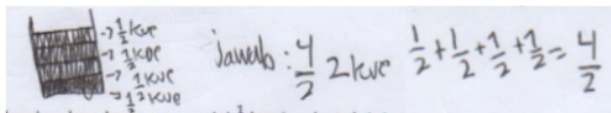 → 1/2 kue
→ 1/2 kue
→ 1/2 kue
→ 1/2 kue
Jawab : 4/2 2 kue
1/2 + 1/2 + 1/2 + 1/2 = 4/2